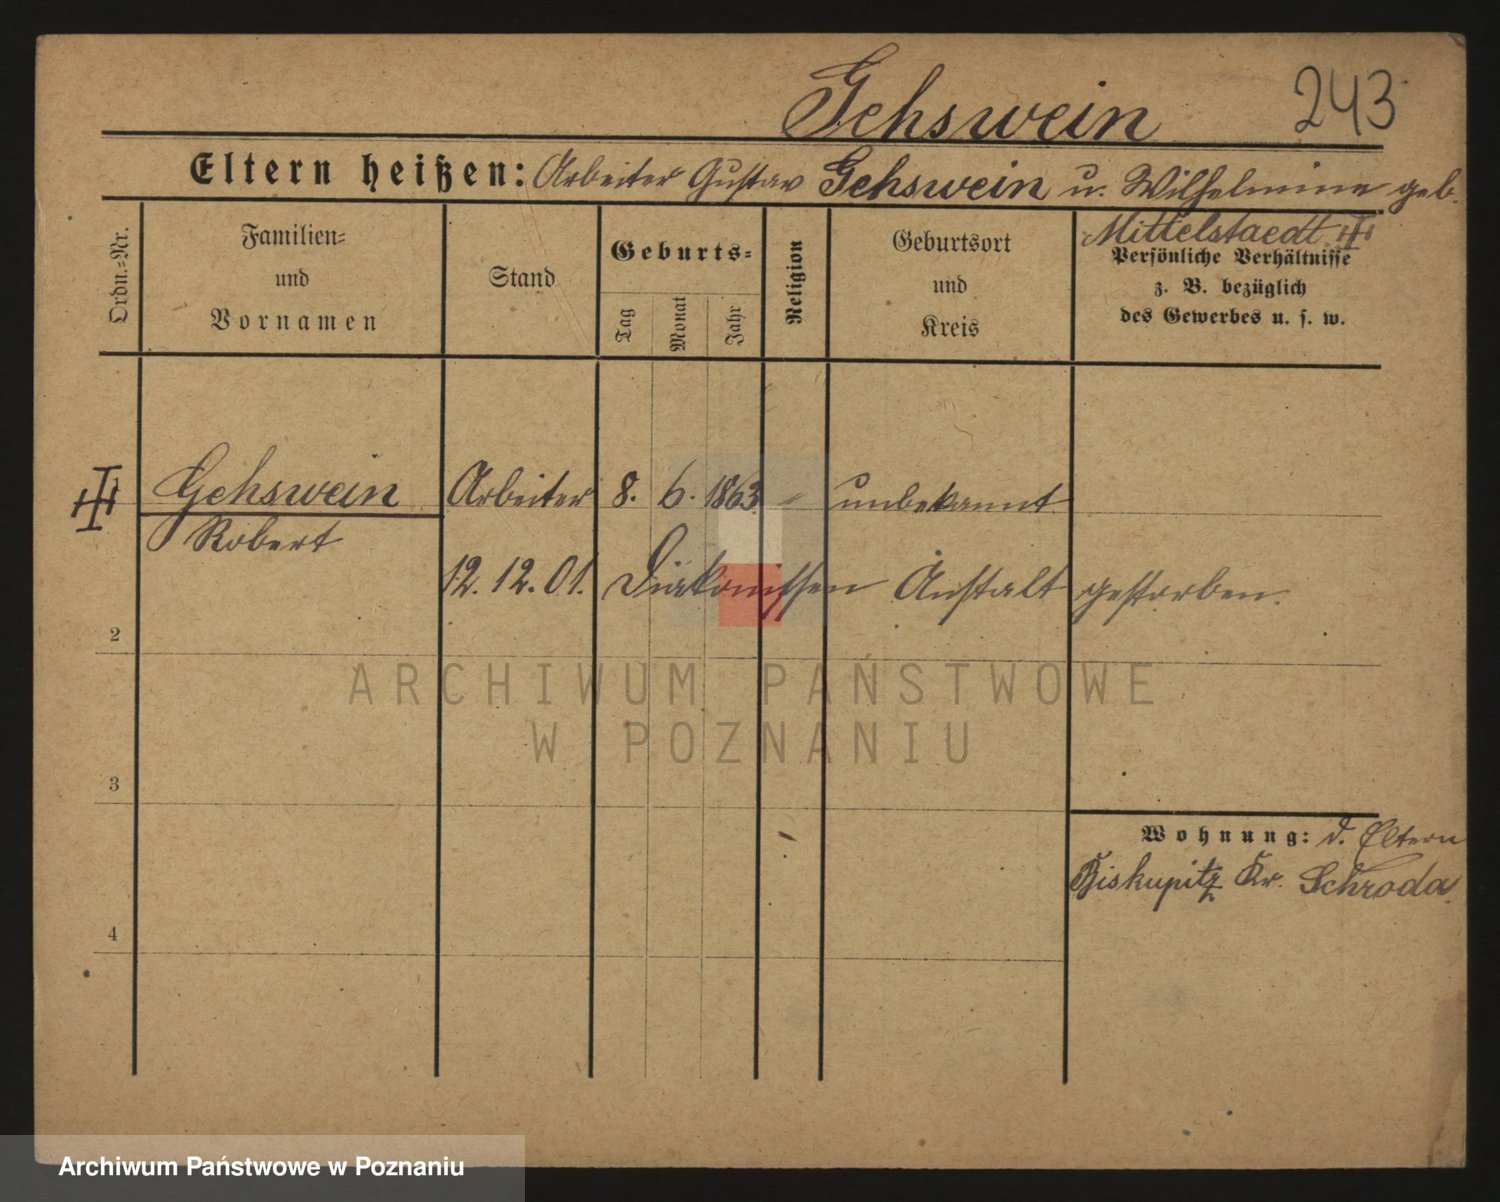 Gehswein 243
Eltern heißen: Arbeiter Gustav Gehswein u. Wilhelmine geb.
Mittelstaedt
Ordn.=Nr.
Familien=
und
Vornamen
Stand
Geburts=
Tag
Monat
Jahr
Religion
Geburtsort
und
Kreis
Persönliche Verhältnisse
z. B. bezüglich
des Gewerbes u. s. w.
Gehswein Arbeiter 8. 6. 1863 " unbekannt
Robert
12. 12. 01. Diakonissen Anstalt gestorben.
2
ARCHIWUM PAŃSTWOWE
W POZNANIU
3
Wohnung: d. Eltern
Biskupitz Kr. Schroda.
4
Archiwum Państwowe w Poznaniu